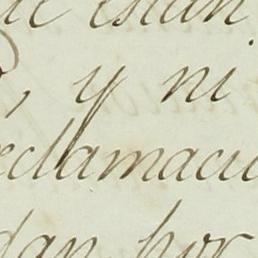 están
, y ni
eclamaci
dan por